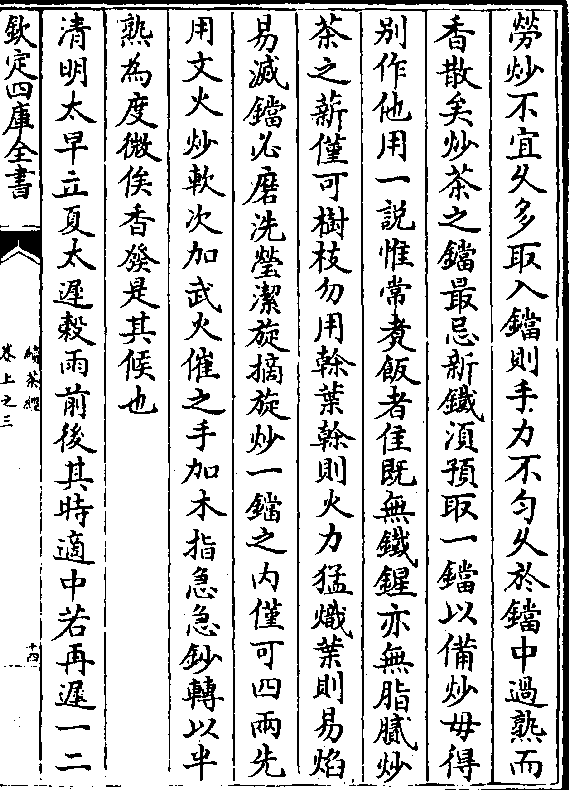 勞炒不宜久多取入鐺則手力不匀久於鐺中過熟而
香散矣炒茶之鐺最忌新鐵湏預取一鐺以備炒毋得
别作他用一說惟常煑飯者佳既無鐵鍟亦無脂膩炒
茶之薪僅可樹枝勿用榦葉榦則火力猛熾葉則易焰
易滅鐺必磨洗瑩潔旋摘旋炒一鐺之内僅可四兩先
用文火炒軟次加武火催之手加木指急急鈔轉以半
熟為度微俟香發是其候也
清明太早立夏太遲榖雨前後其時適中若再遲一二
欽定四庫全書
續茶經
卷上之三
十四